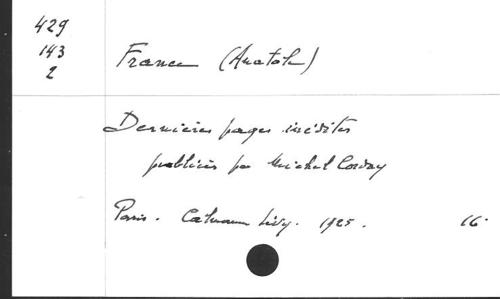 429
143
2
France (Anatole)
Dernières pages inédites
publiées par Michel Corday
Paris. Calmann Lévy. 1925.
16°